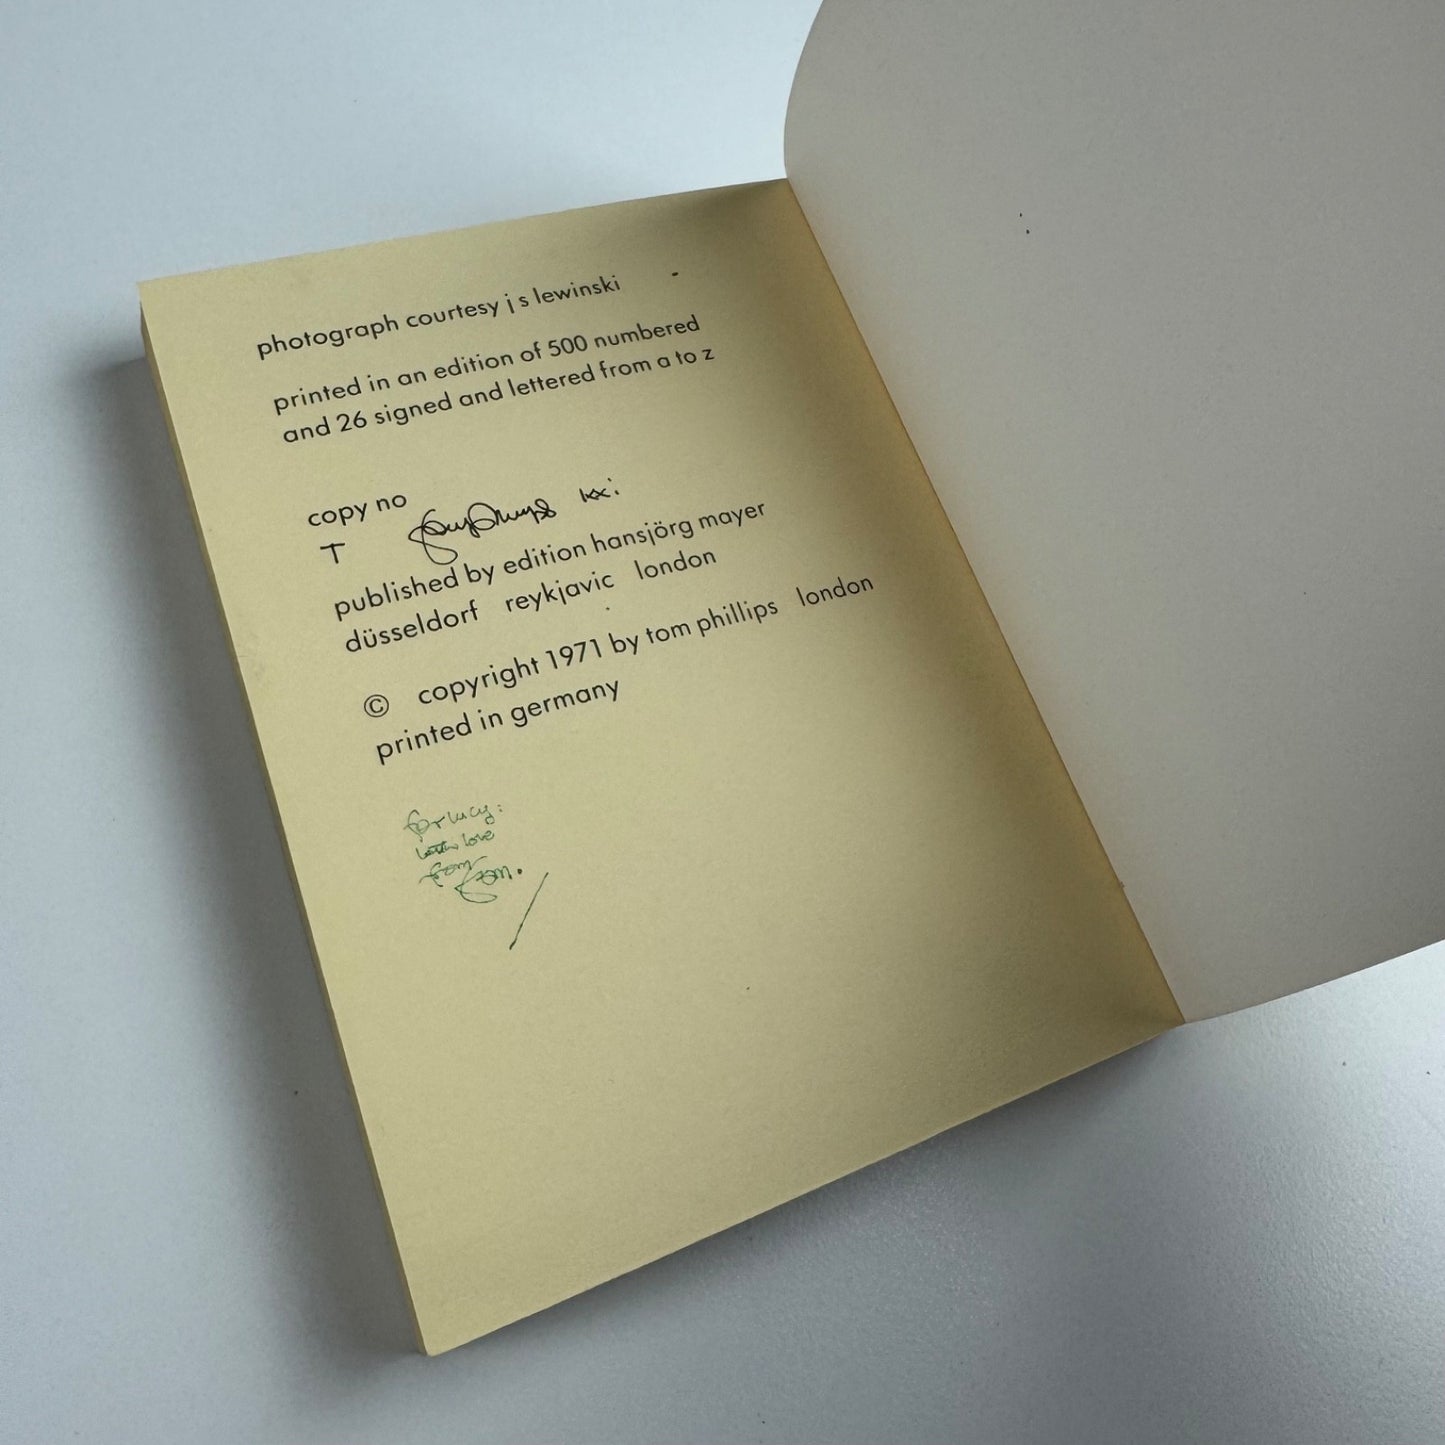 photograph courtesy j s lewinski
printed in an edition of 500 numbered
and 26 signed and lettered from a to z
copy no
T
published by edition hansjörg mayer
düsseldorf reykjavic london
© copyright 1971 by tom phillips london
printed in germany
for lucy:
love
from tom.